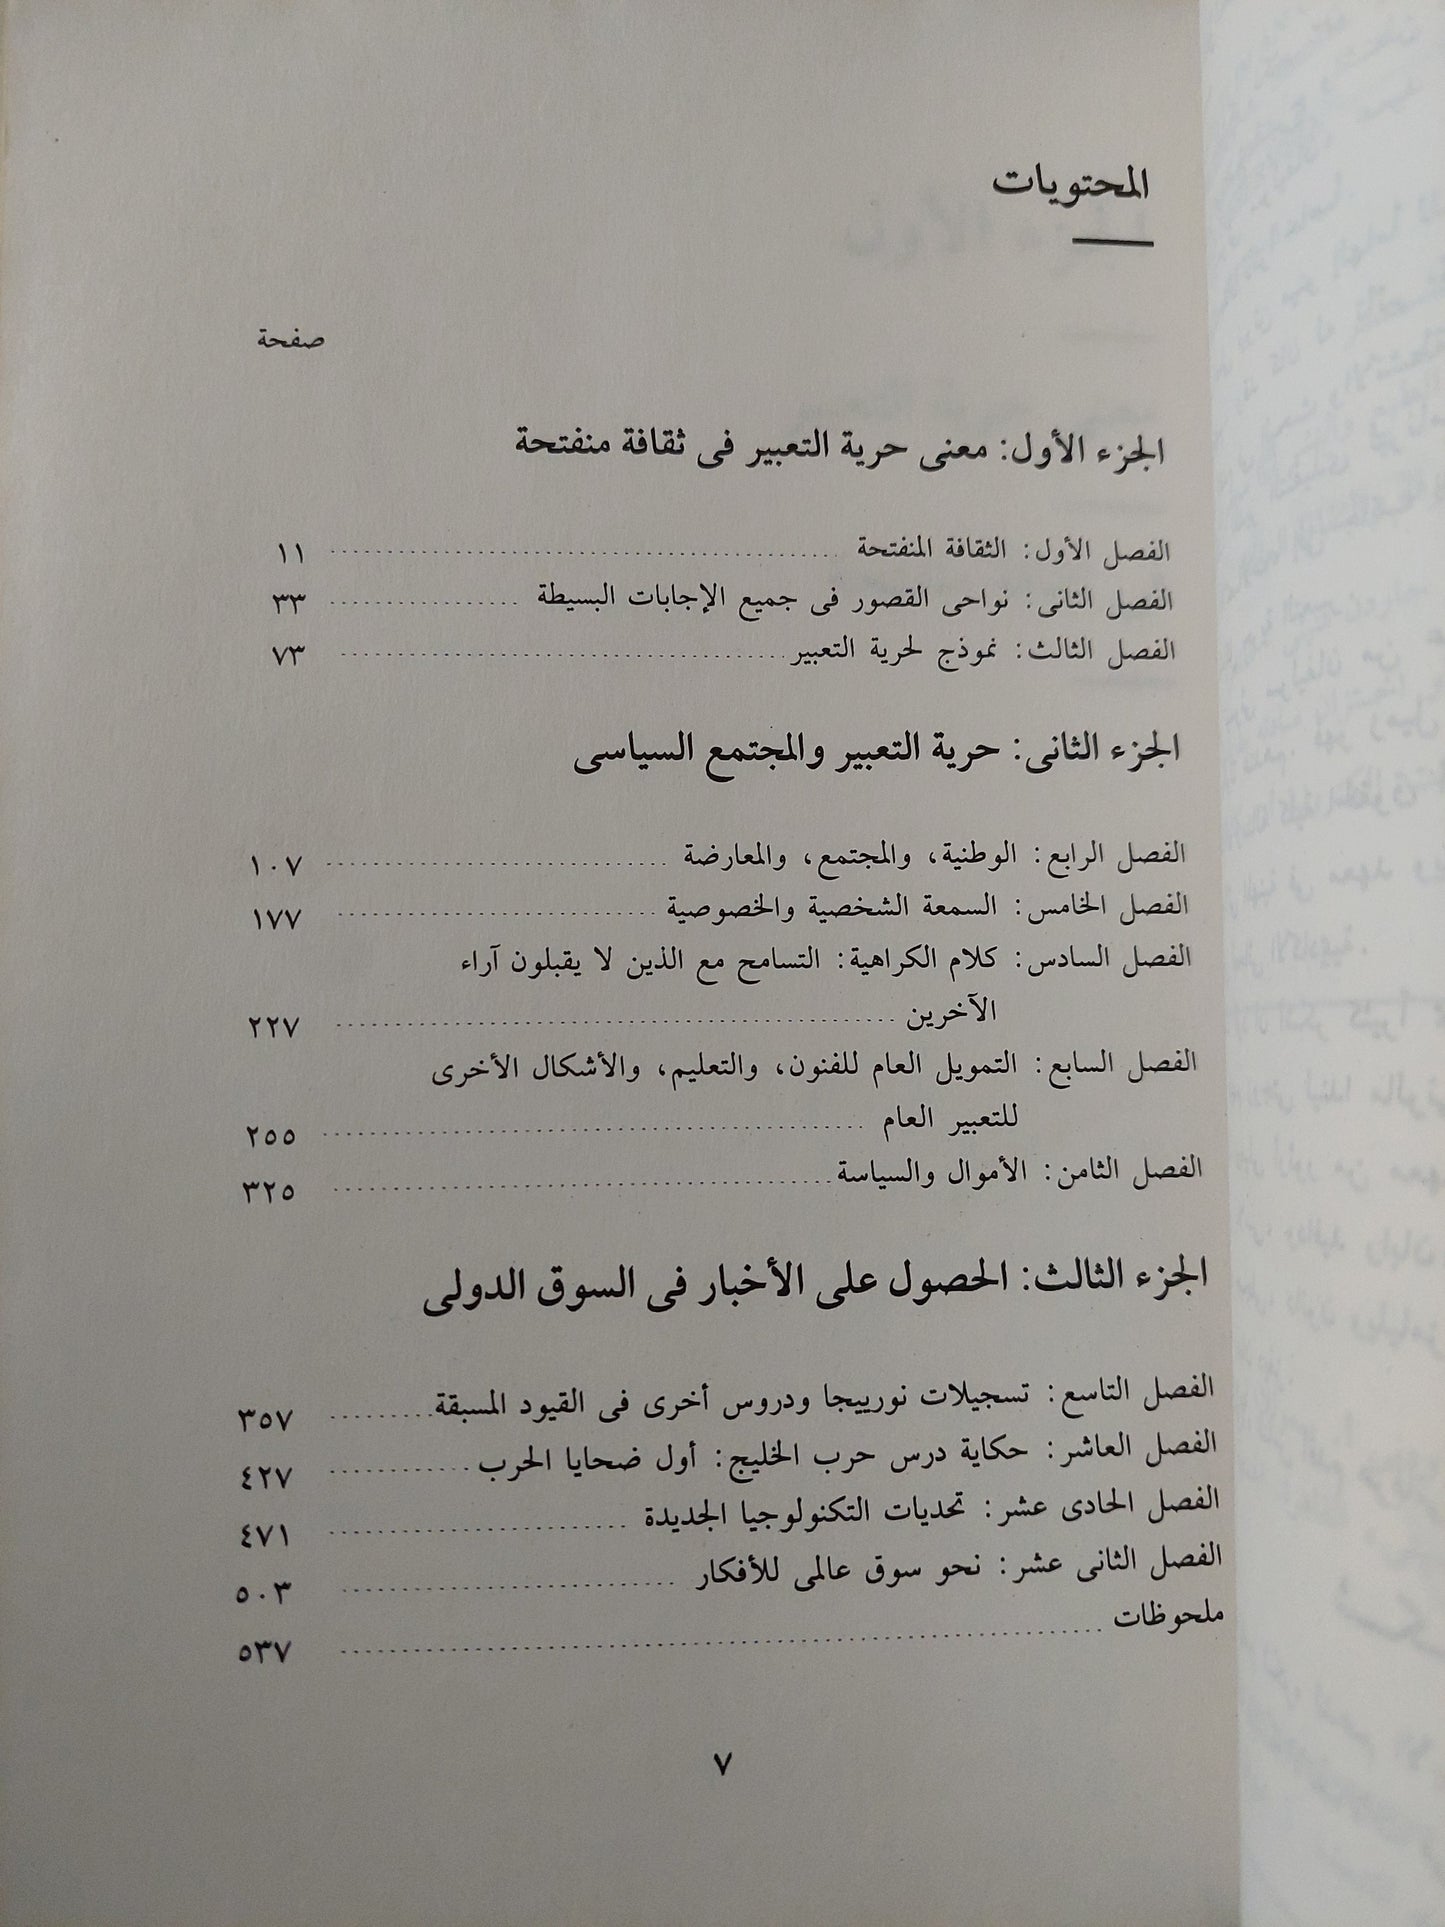 المحتويات
صفحة
الجزء الأول: معنى حرية التعبير فى ثقافة منفتحة
الفصل الأول: الثقافة المنفتحة ١١
الفصل الثانى: نواحى القصور فى جميع الإجابات البسيطة ٣٣
الفصل الثالث: نموذج لحرية التعبير ٧٣
الجزء الثانى: حرية التعبير والمجتمع السياسى
الفصل الرابع: الوطنية، والمجتمع، والمعارضة ١٠٧
الفصل الخامس: السمعة الشخصية والخصوصية ١٧٧
الفصل السادس: كلام الكراهية: التسامح مع الذين لا يقبلون آراء
الآخرين ٢٢٧
الفصل السابع: التمويل العام للفنون، والتعليم، والأشكال الأخرى
للتعبير العام ٢٥٥
الفصل الثامن: الأموال والسياسة ٣٢٥
الجزء الثالث: الحصول على الأخبار فى السوق الدولى
الفصل التاسع: تسجيلات نورييجا ودروس أخرى فى القيود المسبقة ٣٥٧
الفصل العاشر: حكاية درس حرب الخليج: أول ضحايا الحرب ٤٢٧
الفصل الحادى عشر: تحديات التكنولوجيا الجديدة ٤٧١
الفصل الثانى عشر: نحو سوق عالمى للأفكار ٥٠٣
ملحوظات ٥٣٧
٧